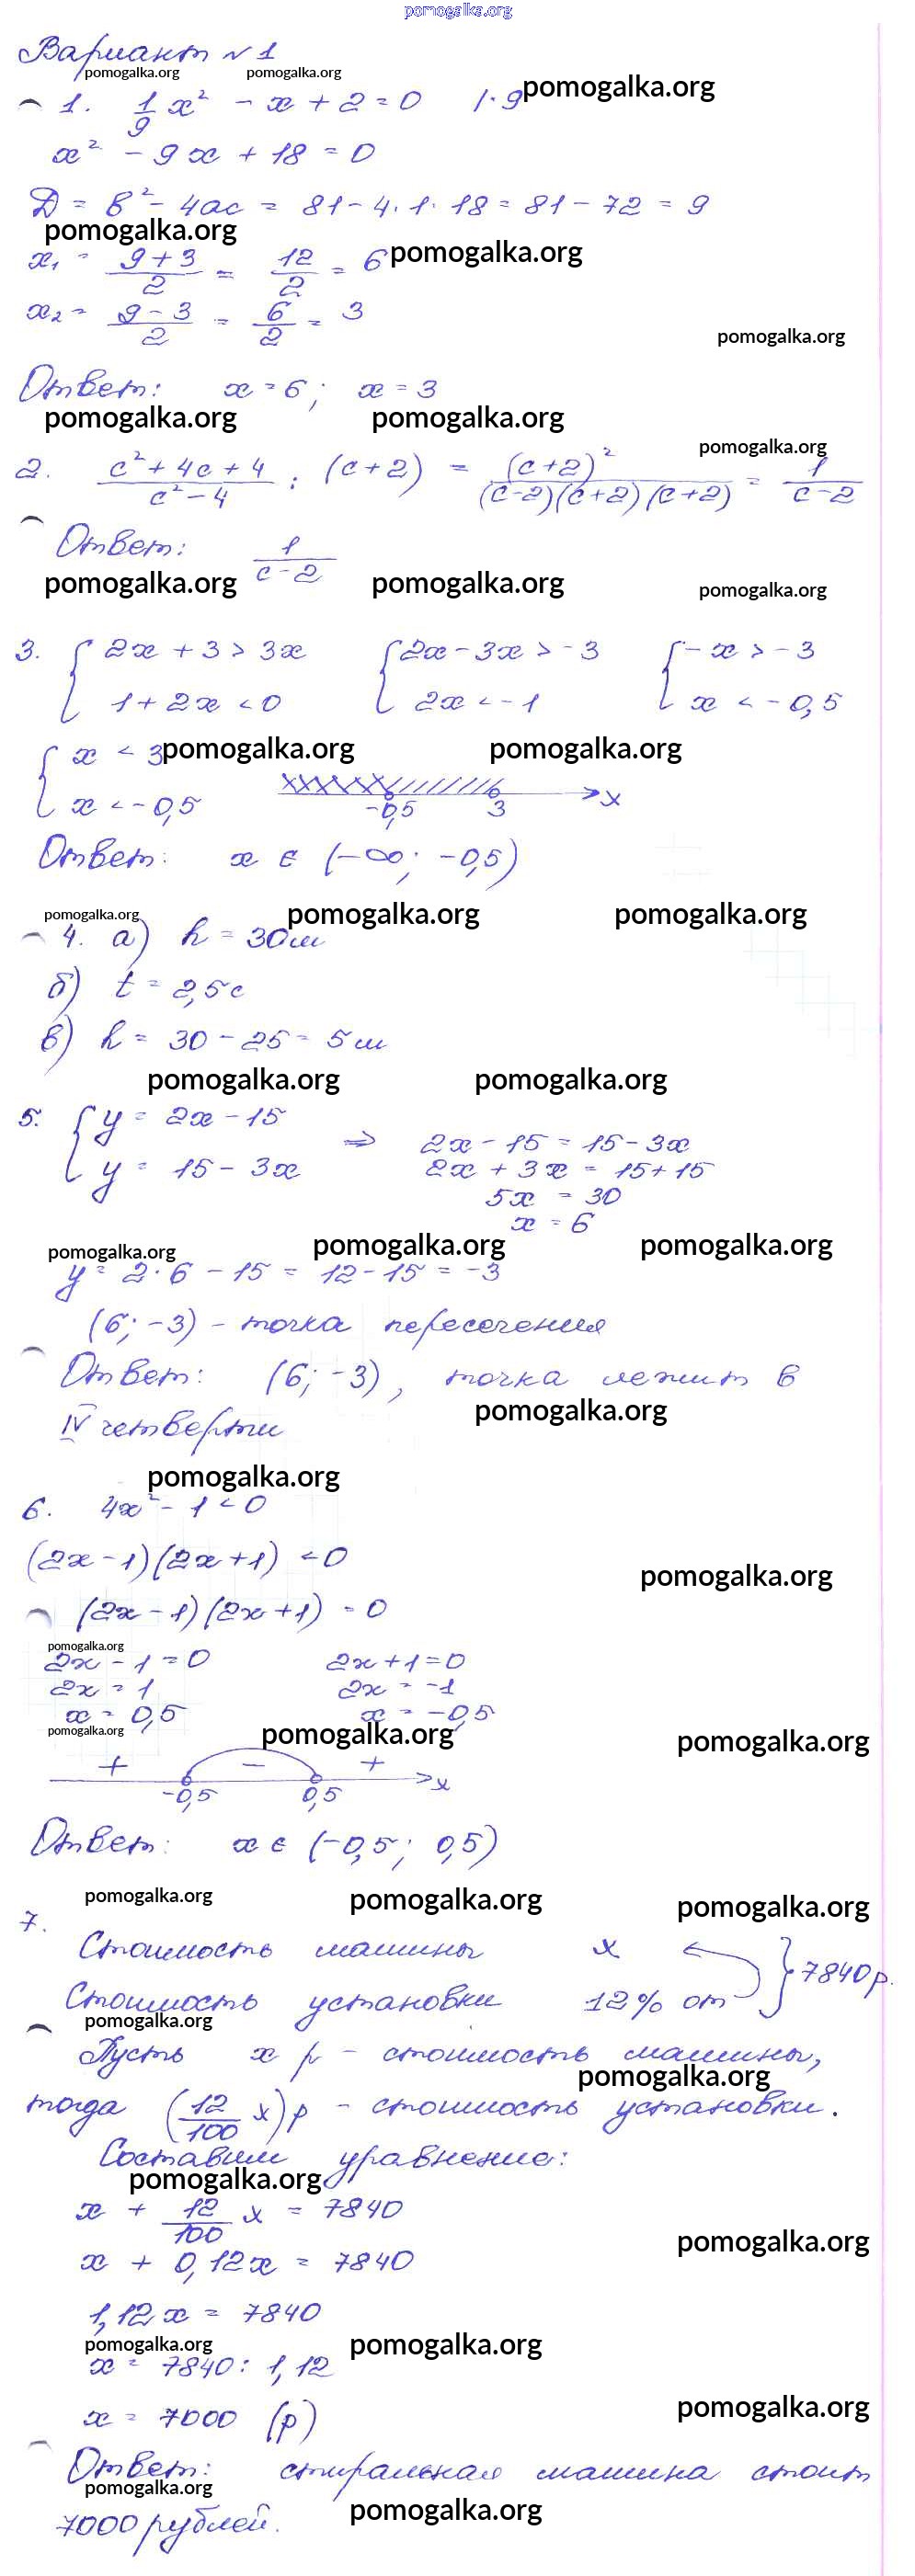 pomogalka.org
Вариант №1
pomogalka.org pomogalka.org pomogalka.org
1. 1/9 x² - x + 2 = 0 |·9
x² - 9x + 18 = 0
D = b² - 4ac = 81 - 4·1·18 = 81 - 72 = 9
pomogalka.org pomogalka.org
x₁ = (9+3)/2 = 12/2 = 6
x₂ = (9-3)/2 = 6/2 = 3
pomogalka.org
Ответ: x = 6; x = 3
pomogalka.org pomogalka.org
pomogalka.org
2. (c² + 4c + 4)/(c² - 4) : (c+2) = (c+2)²/((c-2)(c+2)(c+2)) = 1/(c-2)
Ответ: 1/(c-2)
pomogalka.org pomogalka.org pomogalka.org
3. { 2x + 3 > 3x { 2x - 3x > -3 { -x > -3
1 + 2x < 0 2x < -1 x < -0,5
{ x < 3 pomogalka.org pomogalka.org
x < -0,5 -0,5 3 x
Ответ: x ∈ (-∞; -0,5)
pomogalka.org pomogalka.org pomogalka.org
4. а) h = 30м
б) t = 2,5с
в) h = 30 - 25 = 5м
pomogalka.org pomogalka.org
5. { y = 2x - 15 ⇒ 2x - 15 = 15 - 3x
y = 15 - 3x 2x + 3x = 15 + 15
5x = 30
x = 6
pomogalka.org pomogalka.org pomogalka.org
y = 2·6 - 15 = 12 - 15 = -3
(6; -3) - точка пересечения
Ответ: (6; -3), точка лежит в
pomogalka.org
IV четверти
pomogalka.org
6. 4x² - 1 < 0
(2x - 1)(2x + 1) < 0
pomogalka.org
(2x - 1)(2x + 1) = 0
pomogalka.org
2x - 1 = 0 2x + 1 = 0
2x = 1 2x = -1
x = 0,5 x = -0,5
pomogalka.org pomogalka.org pomogalka.org
+ - +
-0,5 0,5 x
Ответ: x ∈ (-0,5; 0,5)
pomogalka.org pomogalka.org pomogalka.org
7.
Стоимость машины x
Стоимость установки 12% от } 7840 р.
pomogalka.org
Пусть x р - стоимость машины,
pomogalka.org
тогда (12/100 x) р - стоимость установки.
Составим уравнение:
pomogalka.org
x + 12/100 x = 7840
pomogalka.org
x + 0,12x = 7840
1,12x = 7840
pomogalka.org pomogalka.org
x = 7840 : 1,12
pomogalka.org
x = 7000 (р)
Ответ: стиральная машина стоит
pomogalka.org pomogalka.org
7000 рублей.